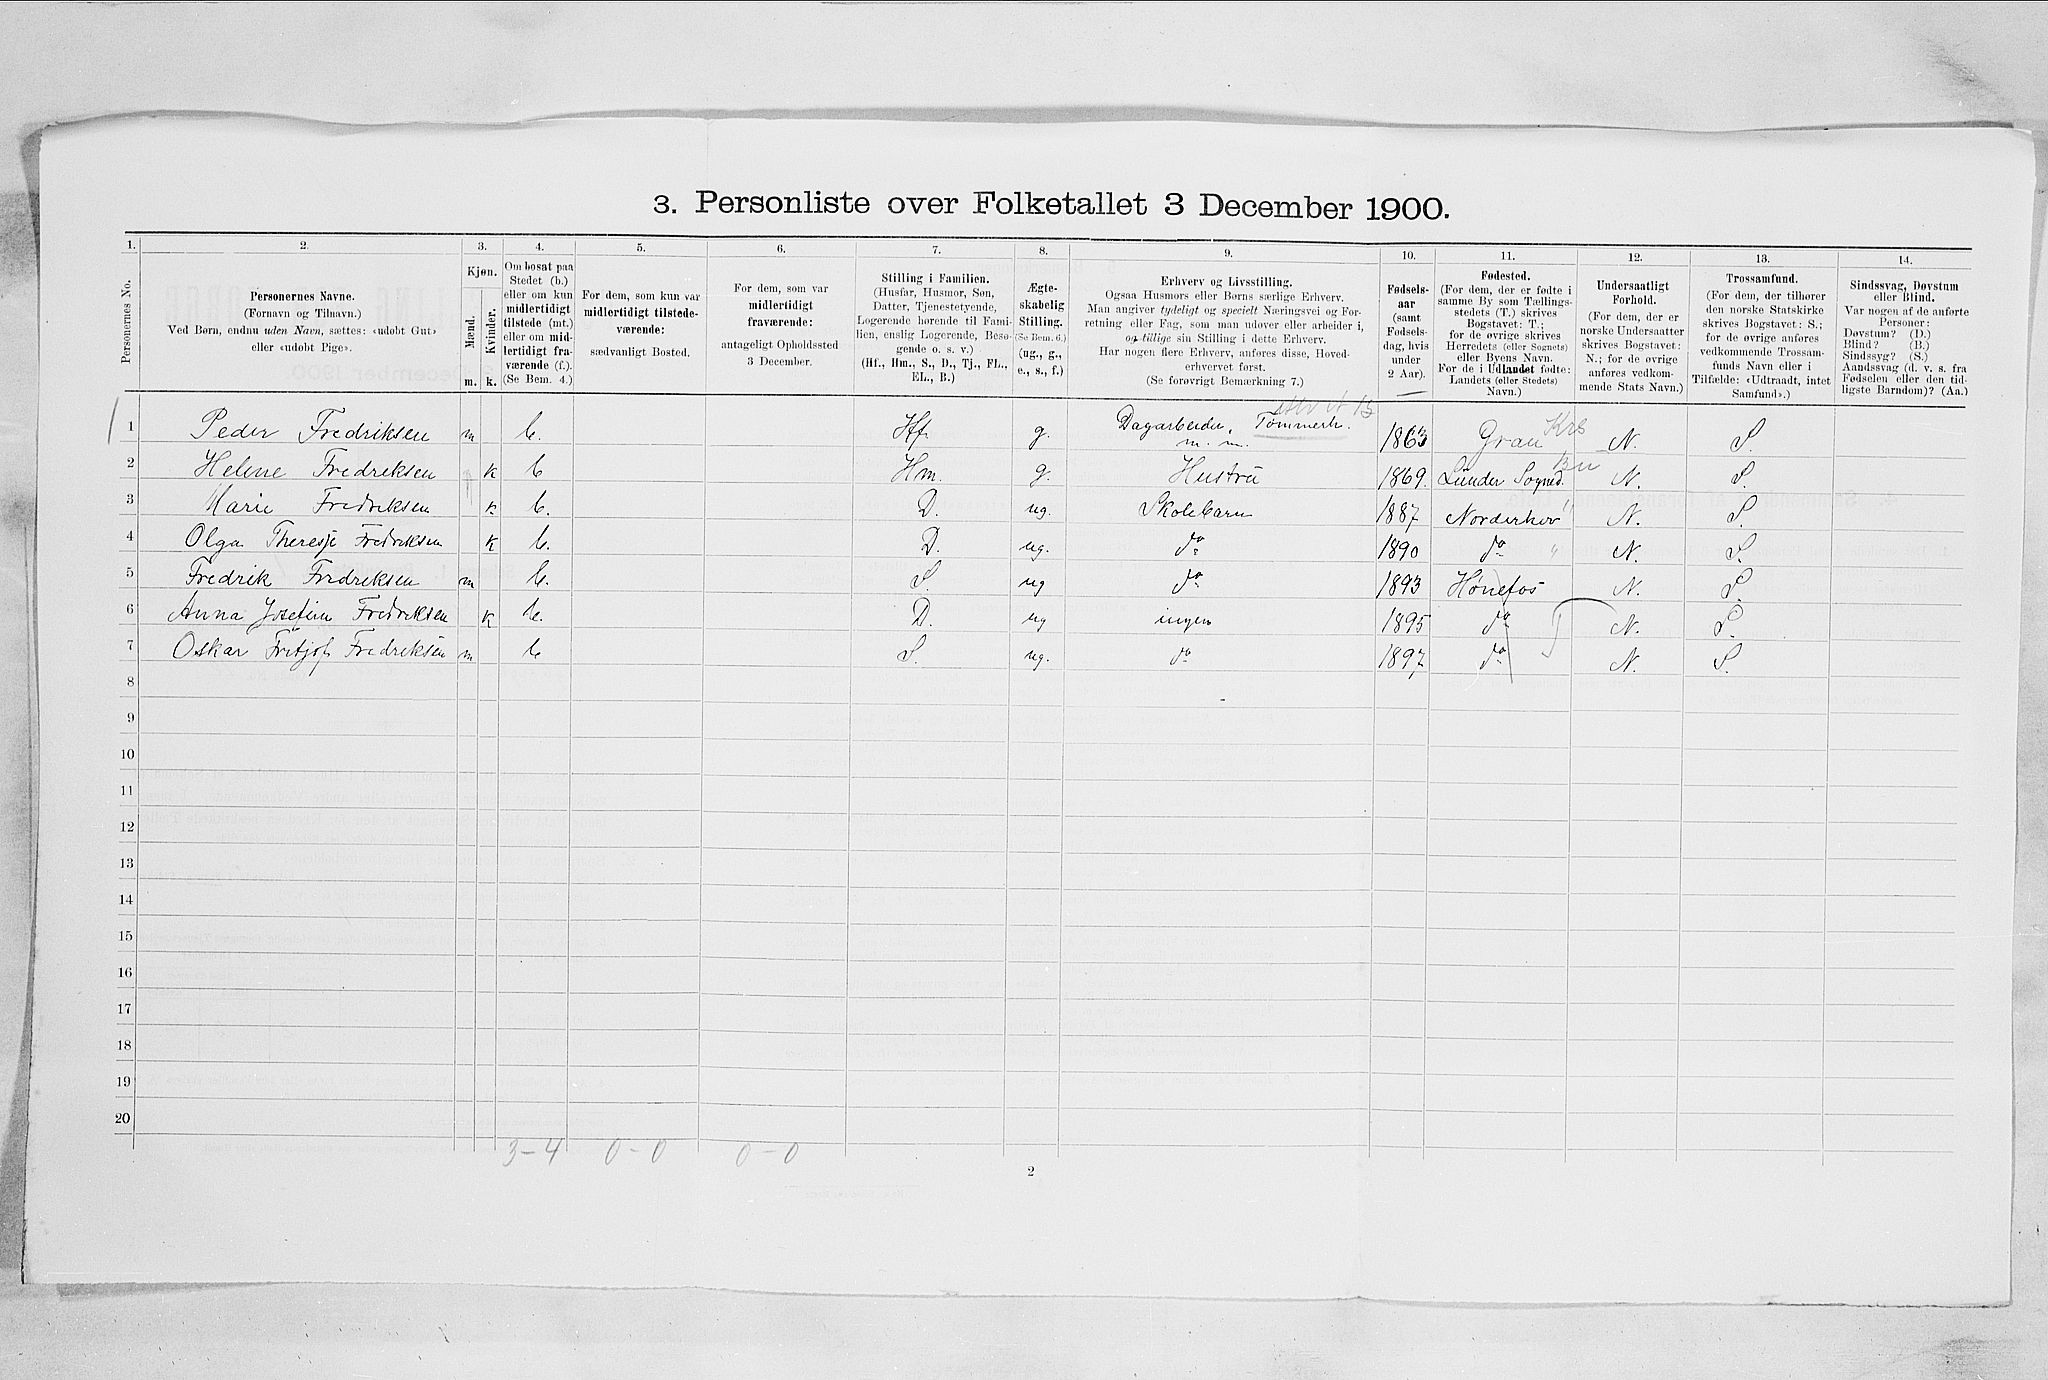 3. Personliste over Folketallet 3 December 1900.
1. 2. 3. 4. 5. 6. 7. 8. 9. 10. 11. 12. 13. 14.
Personernes No.
Personernes Navne.
(Fornavn og Tilnavn.)
Ved Børn, endnu uden Navn, sættes: «udøbt Gut»
eller «udøbt Pige».
Kjøn.
Mænd.
Kvinder.
m. k.
Om bosat paa
Stedet (b.)
eller om kun
midlertidigt
tilstede (mt.)
eller om mid-
lertidigt fra-
værende (f.).
(Se Bem. 4.)
For dem, som kun var
midlertidigt tilstede-
værende:
sædvanligt Bosted.
For dem, som var
midlertidigt
fraværende:
antageligt Opholdssted
3 December.
Stilling i Familien.
(Husfar, Husmor, Søn,
Datter, Tjenestetyende,
Logerende hørende til Fami-
lien, enslig Logerende, Besø-
gende o. s. v.)
(Hf., Hm., S., D., Tj., FL.,
EL., B.)
Ægte-
skabelig
Stilling.
(Se Bem. 6.)
(ug., g.,
e., s., f.)
Erhverv og Livsstilling.
Ogsaa Husmors eller Børns særlige Erhverv.
Man angiver tydeligt og specielt Næringsvei og For-
retning eller Fag, som man udøver eller arbeider i,
og tillige sin Stilling i dette Erhverv.
Har nogen flere Erhverv, anføres disse, Hoved-
erhvervet først.
(Se forøvrigt Bemærkning 7.)
Fødsels-
aar
(samt
Fødsels-
dag, hvis
under
2 Aar).
Fødested.
(For dem, der er føde i
samme By som Tællings-
stedets (T.) skrives
Bogstavet: T.;
for de øvrige skrives
Herredets (eller Sognets)
eller Byens Navn.
For de i Udlandet fødte:
Landets (eller Stedets)
Navn.)
Undersaatligt
Forhold.
(For dem, der er
norske Undersaatter
skrives Bogstavet:
N.; for de øvrige
anføres vedkom-
mende Stats Navn.)
Trossamfund.
(For dem, der tilhører
den norske Statskirke
skrives Bogstavet: S.;
for de øvrige anføres
vedkommende Trossam-
funds Navn eller i
Tilfælde: «Udtraadt, intet
Samfund».)
Sindssvag, Døvstum
eller Blind.
Var nogen af de anførte
Personer:
Døvstum? (D.)
Blind? (B.)
Sindssyg? (S.)
Aandssvag (d. v. s. fra
Fødselen eller den tid-
ligste Barndom)? (Aa.)
1 Peder Fredriksen m b. Hf. g. Dagarbeider, Tømmerh. m. m. 1863 Gran Krs N. S.
2 Helene Fredreksen k b Hm. g. Hustru 1869. Lunder Sogned. Bu N. S.
3 Marie Fredreksen k b. D. ug. Skolebarn 1887 Norderhov " N. S.
4 Olga Theresje Fredreksen k b. D. ug. do 1890 do " N. S.
5 Fredrik Fredreksen m b. S. ug do 1893 Hønefos N. S.
6 Anna Josefine Fredreksen k b. D. ug ingen 1895 do T N. S.
7 Oskar Fritjof Fredreksen m b S. ug. do 1897 do N. S.
8
9
10
11
12
13
14
15
16
17
18
19
20
3-4 0-0 0-0
2